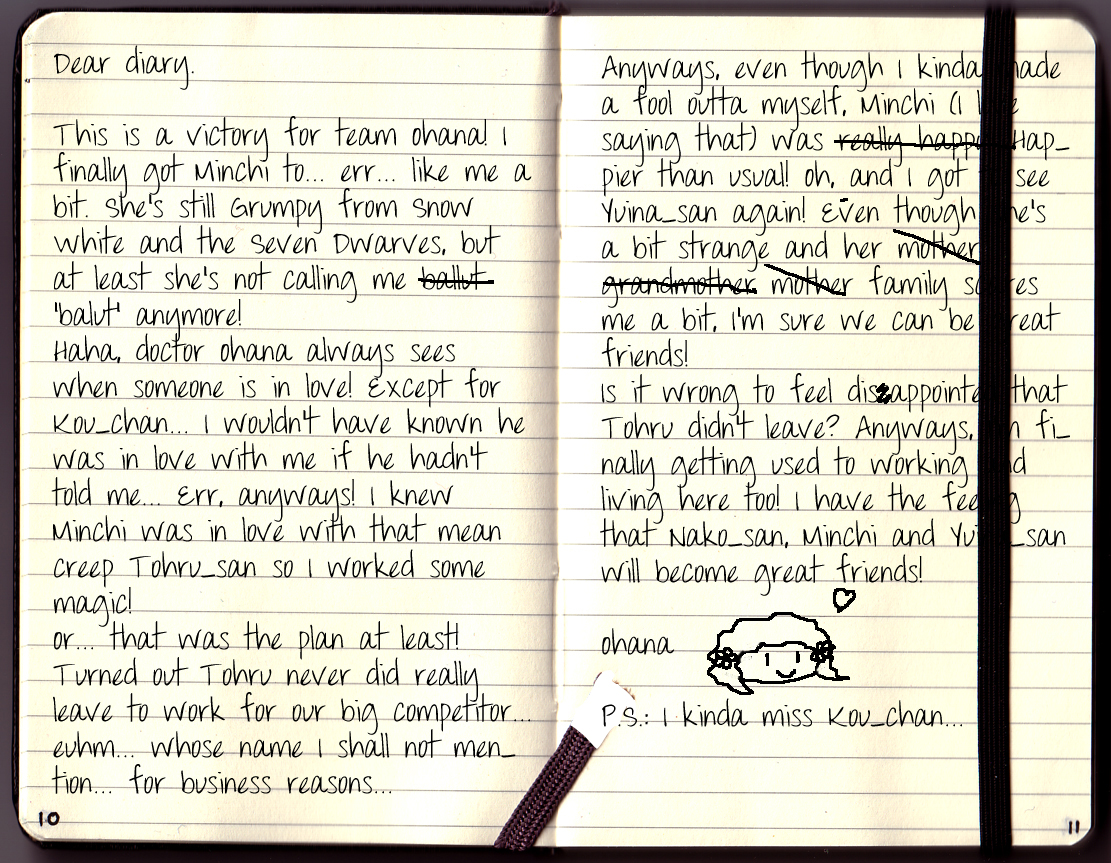 Dear diary.
This is a victory for team ohana! I
finally got Minchi to... err... like me a
bit. She's still Grumpy from Snow
White and the Seven Dwarves, but
at least she's not calling me ballut
'balut' anymore!
Haha, doctor ohana always sees
when someone is in love! Except for
Kou_chan... I wouldn't have known he
was in love with me if he hadn't
told me... Err, anyways! I knew
Minchi was in love with that mean
creep Tohru_san so I worked some
magic!
or... that was the plan at least!
Turned out Tohru never did really
leave to work for our big competitor...
euhm... whose name I shall not men_
tion... for business reasons...
10
Anyways, even though I kinda made
a fool outta myself, Minchi (I like
saying that) was really happ Hap_
pier than usual! oh, and I got to see
Yuina_san again! Even though she's
a bit strange and her mother
grandmother mother family scares
me a bit, I'm sure we can be great
friends!
Is it wrong to feel disappointed that
Tohru didn't leave? Anyways, I'm fi_
nally getting used to working and
living here too! I have the feeling
that Nako_san, Minchi and Yuina_san
will become great friends!
ohana
P.S.: I kinda miss Kou_chan...
11